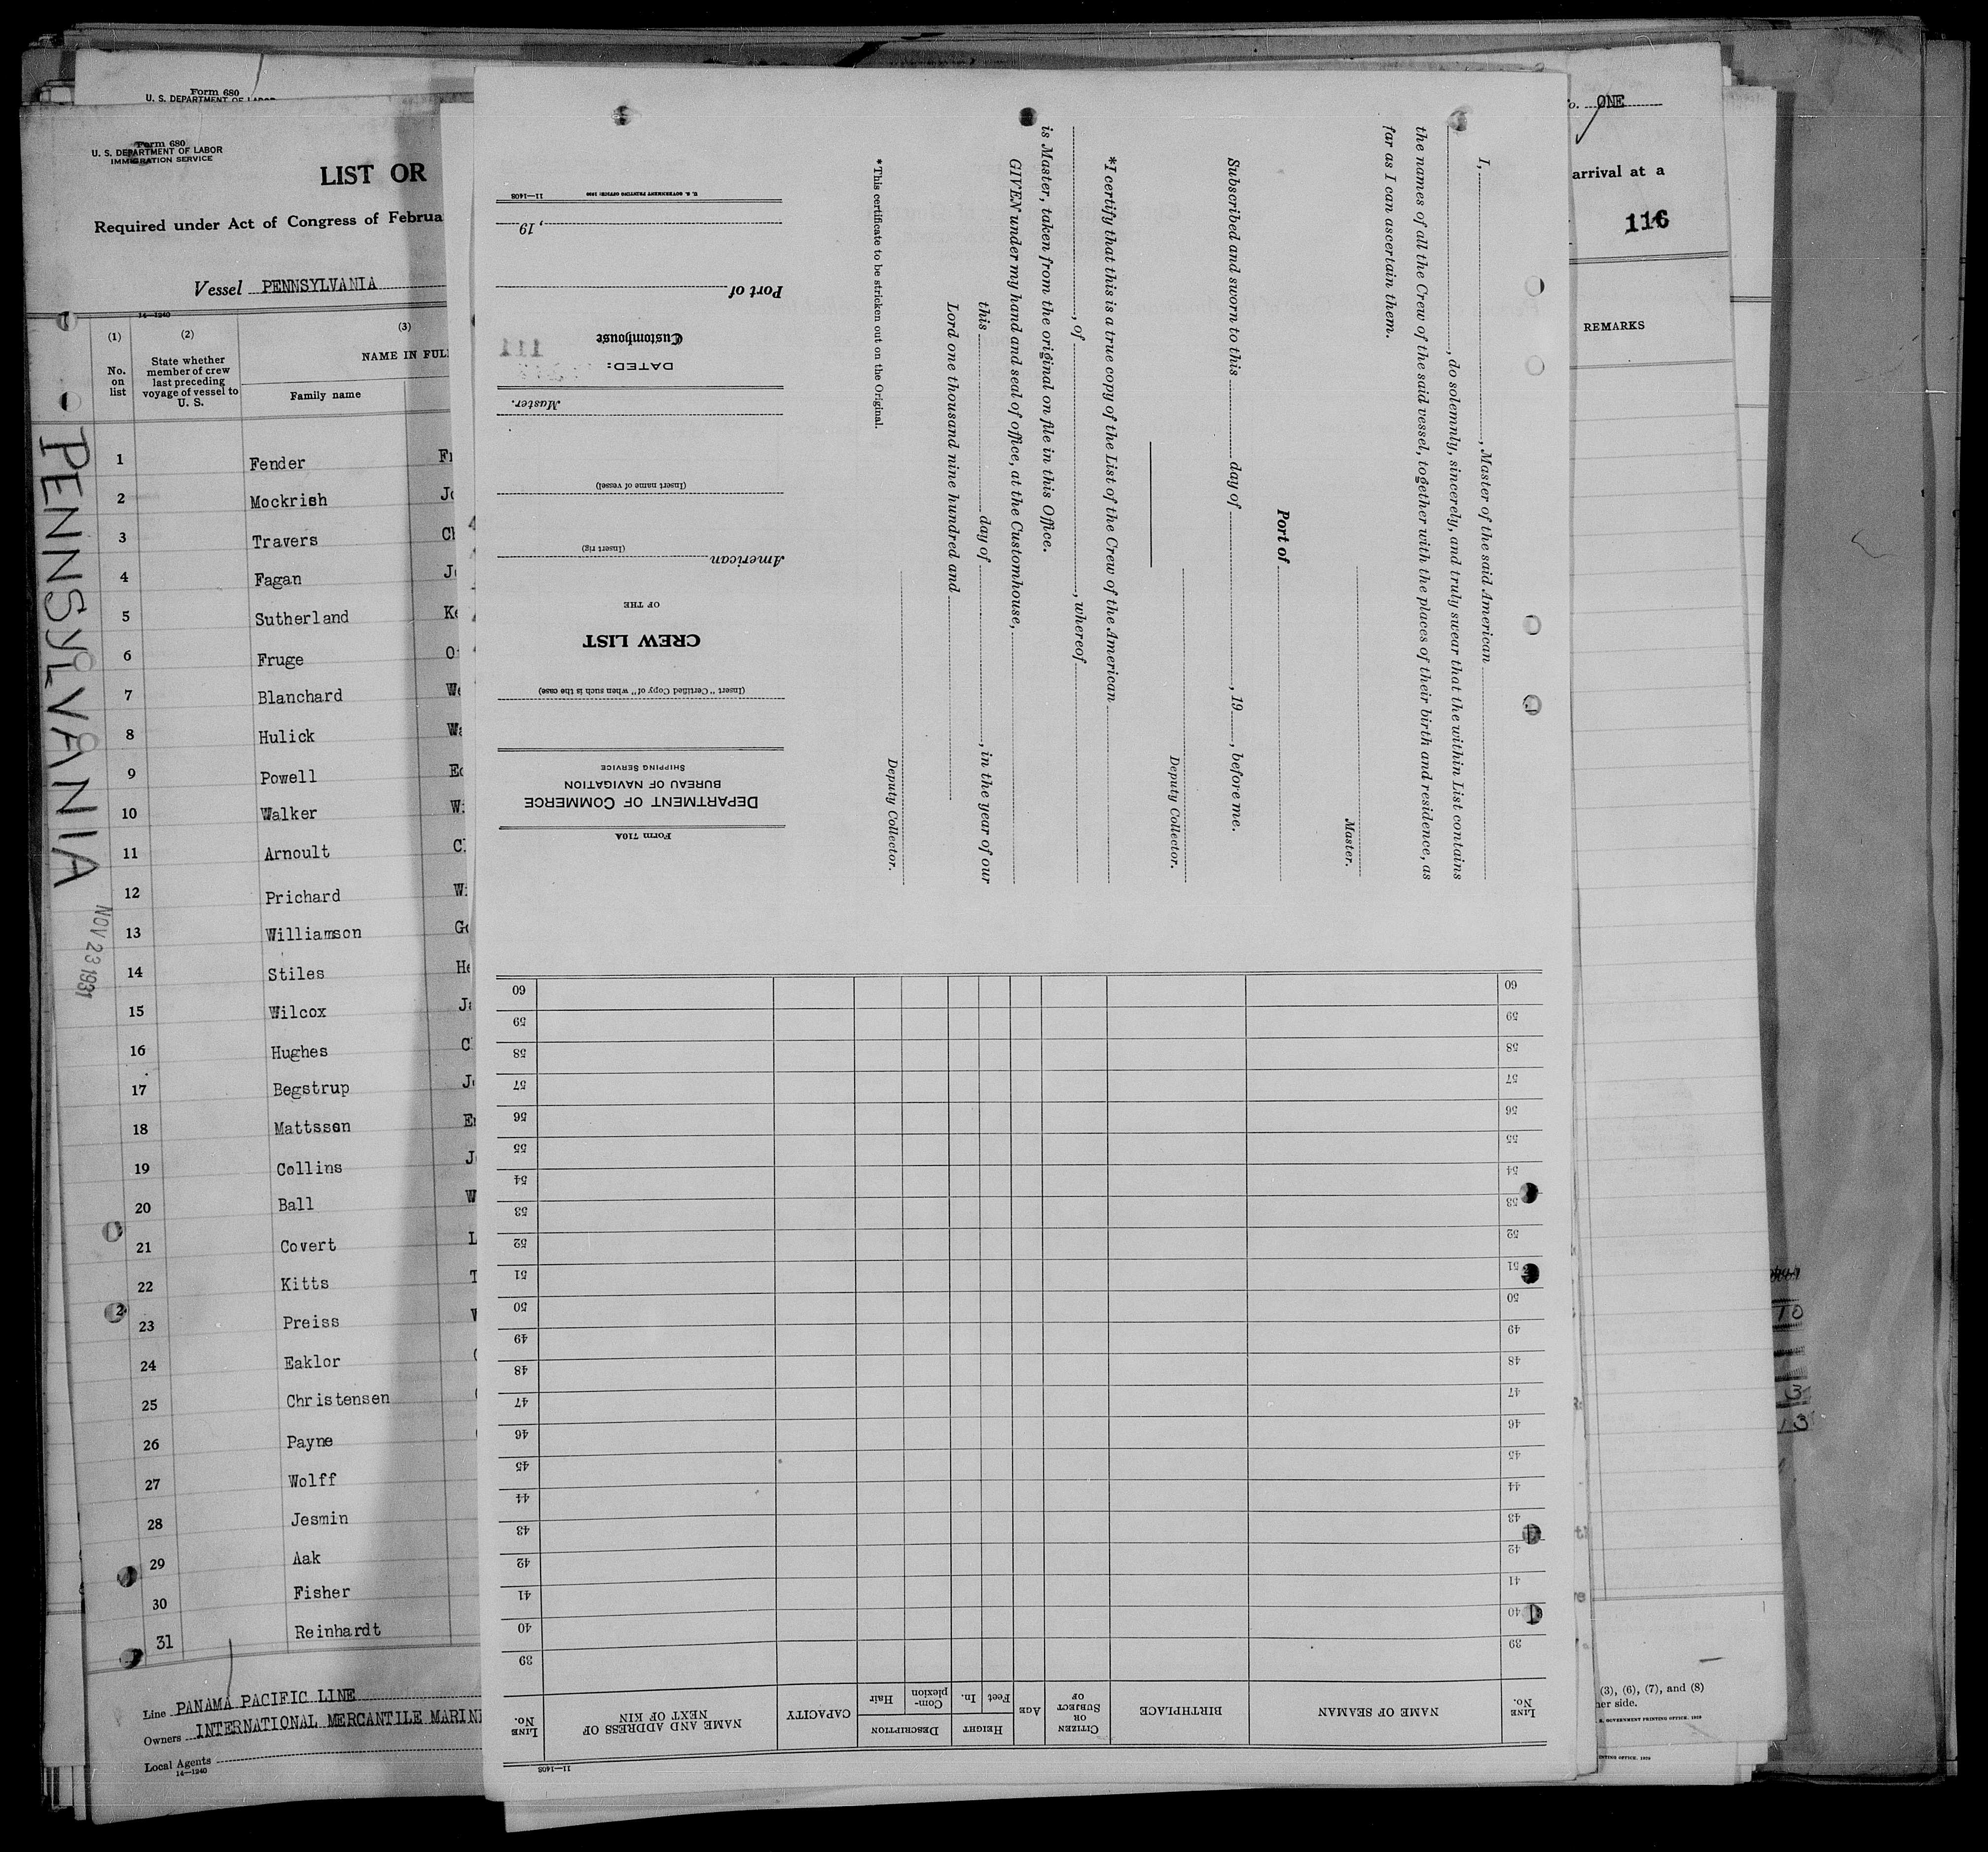 Form 680
U. S. DEPARTMENT OF LABOR
Form 680
U. S. DEPARTMENT OF LABOR
IMMIGRATION SERVICE
LIST OR
Required under Act of Congress of Februa
Vessel PENNSYLVANIA
14—1240
(1)
(2)
(3)
No. on list
State whether member of crew last preceding voyage of vessel to U. S.
NAME IN FULL
Family name
1 Fender Fr
2 Mockrish Jo
3 Travers Ch
4 Fagan Jo
5 Sutherland Ke
6 Fruge Ot
7 Blanchard We
8 Hulick Wa
9 Powell Ed
10 Walker Wi
11 Arnoult Cl
12 Prichard Wi
13 Williamson Ge
14 Stiles He
15 Wilcox Ja
16 Hughes C
17 Begstrup Jo
18 Mattsson Er
19 Collins J
20 Ball W
21 Covert L
22 Kitts T
23 Preiss
24 Eaklor
25 Christensen
26 Payne
27 Wolff
28 Jesmin
29 Aak
30 Fisher
31 Reinhardt
PENNSYLVANIA
NOV 23 1931
Line PANAMA PACIFIC LINE
Owners INTERNATIONAL MERCANTILE MARINE
Local Agents
14—1240
I, , Master of the said American
, do solemnly, sincerely, and truly swear that the within List contains
the names of all the Crew of the said vessel, together with the places of their birth and residence, as
far as I can ascertain them.
Master.
Port of
Subscribed and sworn to this day of , 19 , before me.
Deputy Collector.
*I certify that this is a true copy of the List of the Crew of the American
, of , whereof
is Master, taken from the original on file in this Office.
GIVEN under my hand and seal of office, at the Customhouse,
this day of , in the year of our
Lord one thousand nine hundred and
Deputy Collector.
*This certificate to be stricken out on the Original.
Form 710A
DEPARTMENT OF COMMERCE
BUREAU OF NAVIGATION
SHIPPING SERVICE
(Insert "Certified Copy of" when such is the case)
CREW LIST
OF THE
American
(Insert rig)
(Insert name of vessel)
Master.
DATED:
111
Customhouse
Port of
, 19
11—1408
U. S. GOVERNMENT PRINTING OFFICE: 1930
LINE No.
NAME OF SEAMAN
BIRTHPLACE
CITIZEN OR SUBJECT OF
AGE
HEIGHT
Feet
In.
DESCRIPTION
Complexion
Hair
CAPACITY
NAME AND ADDRESS OF NEXT OF KIN
LINE No.
39 39
40 40
41 41
42 42
43 43
44 44
45 45
46 46
47 47
48 48
49 49
50 50
51 51
52 52
53 53
54 54
55 55
56 56
57 57
58 58
59 59
60 60
11—1408
o. ONE
arrival at a
116
REMARKS
10
3
13
(3), (6), (7), and (8)
her side.
S. GOVERNMENT PRINTING OFFICE. 1929